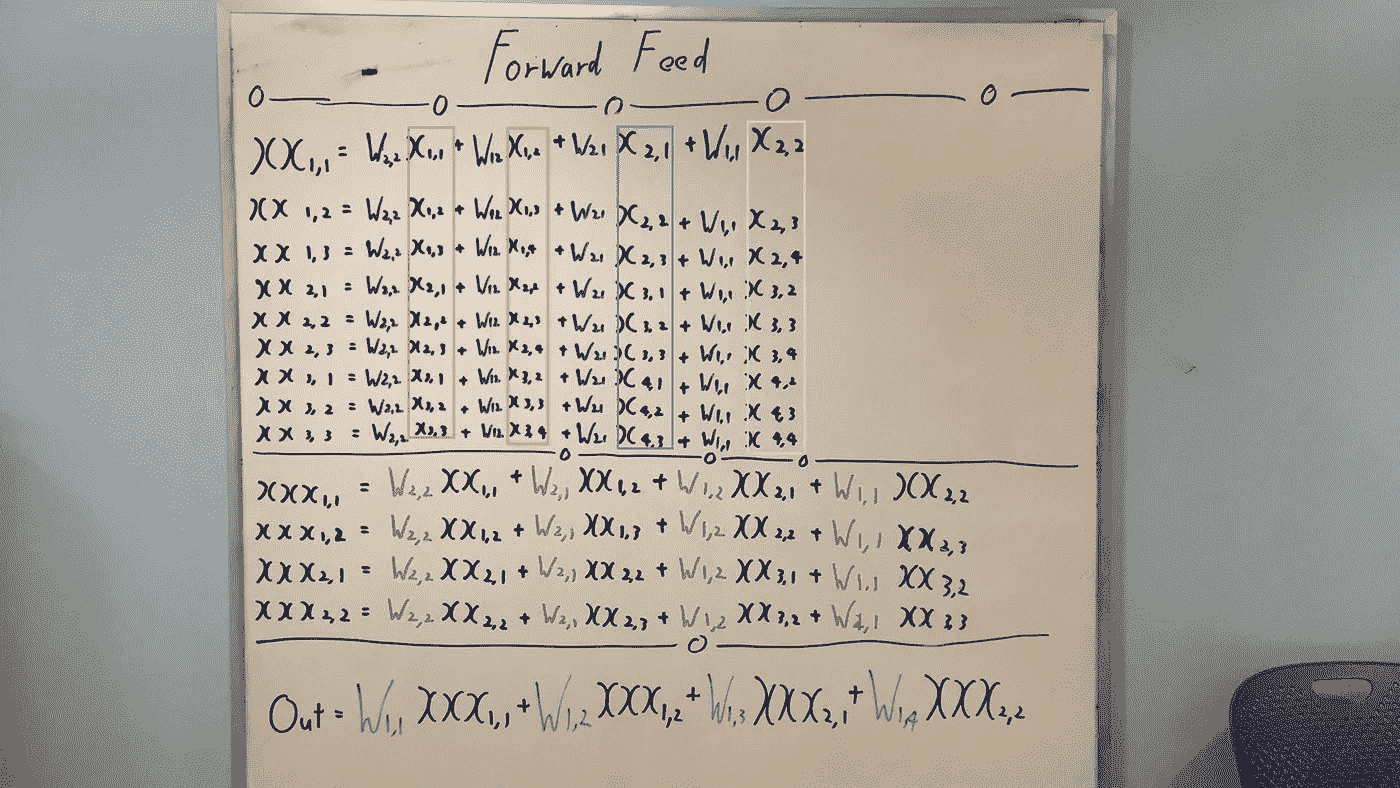 Forward Feed
XX 1,1 = W2,2 X1,1 + W12 X1,2 + W21 X2,1 + W1,1 X2,2
XX 1,2 = W2,2 X1,2 + W12 X1,3 + W21 X2,2 + W1,1 X2,3
XX 1,3 = W2,2 X1,3 + W12 X1,4 + W21 X2,3 + W1,1 X2,4
XX 2,1 = W2,2 X2,1 + W12 X2,2 + W21 X3,1 + W1,1 X3,2
XX 2,2 = W2,2 X2,2 + W12 X2,3 + W21 X3,2 + W1,1 X3,3
XX 2,3 = W2,2 X2,3 + W12 X2,4 + W21 X3,3 + W1,1 X3,4
XX 3,1 = W2,2 X3,1 + W12 X3,2 + W21 X4,1 + W1,1 X4,2
XX 3,2 = W2,2 X3,2 + W12 X3,3 + W21 X4,2 + W1,1 X4,3
XX 3,3 = W2,2 X3,3 + W12 X3,4 + W21 X4,3 + W1,1 X4,4
XXX1,1 = W2,2 XX1,1 + W2,1 XX1,2 + W1,2 XX2,1 + W1,1 XX2,2
XXX1,2 = W2,2 XX1,2 + W2,1 XX1,3 + W1,2 XX2,2 + W1,1 XX2,3
XXX2,1 = W2,2 XX2,1 + W2,1 XX2,2 + W1,2 XX3,1 + W1,1 XX3,2
XXX2,2 = W2,2 XX2,2 + W2,1 XX2,3 + W1,2 XX3,2 + XX3,3
Out = W1,1 XXX1,1 + W1,2 XXX1,2 + W1,3 XXX2,1 + W1,4 XXX2,2